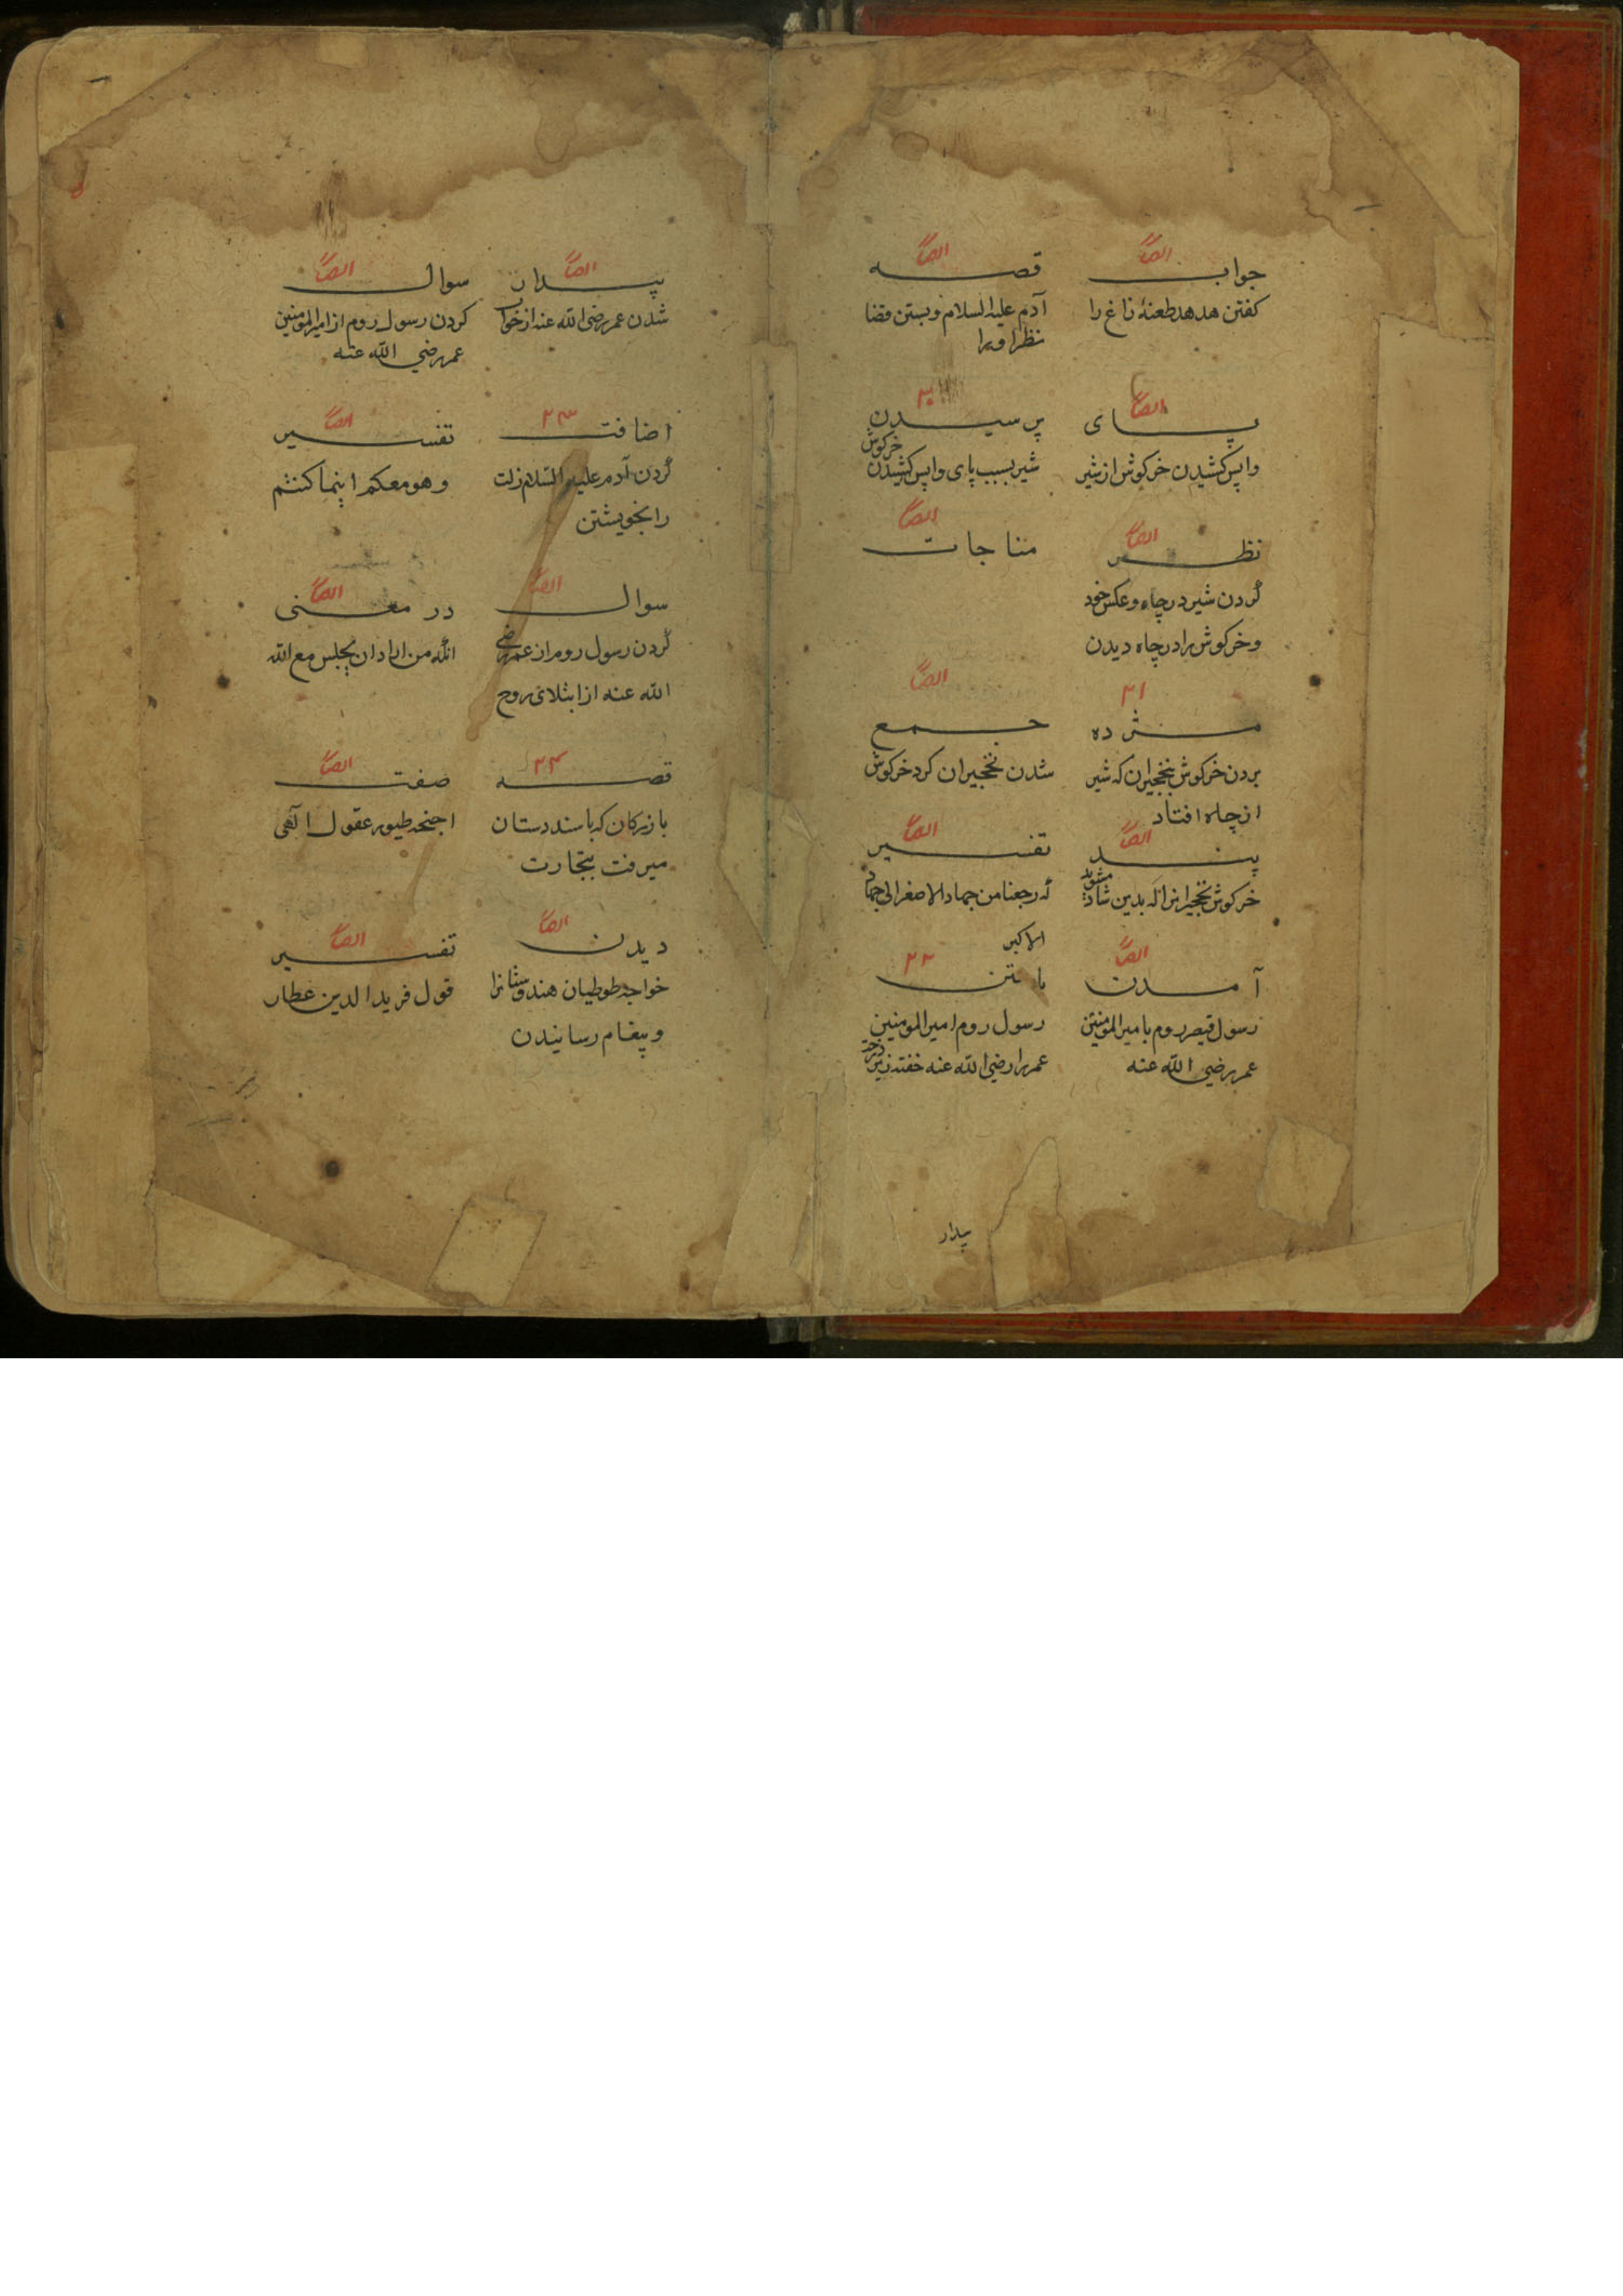 ایضاً
جواب
کفتن هدهد طعنهٔ زاغ را
ایضاً
قصه
آدم علیه السلام و بستن قضا
نظر او را
ایضاً
پای
واپس کشیدن خرکوش از شیر
۲۰
پرسیدن
شیر بسبب پای واپس کشیدن
خرکوش
ایضاً
نظر
کردن شیر در چاه و عکس خود
و خرکوش را در چاه دیدن
ایضاً
مناجات
۲۱
مژده
بردن خرکوش بنخجیران که شیر
از چاه افتاد
ایضاً
جمع
شدن نخجیران کرد خرکوش
ایضاً
پند
خرکوش نخجیرانرا که بدین شاد
مشوید
ایضاً
تفسیر
که رجعنا من جهاد الاصغر الی جهاد
الاکبر
ایضاً
آمدن
رسول قیصر روم بامیر المومنین
عمر رضی الله عنه
۲۲
یافتن
رسول روم امیر المومنین
عمر را رضی الله عنه خفته زیر
درخت
پیدار
ایضاً
پیدار
شدن عمر رضی الله عنه از خواب
ایضاً
سوال
کردن رسول روم از امیر المومنین
عمر رضی الله عنه
۲۳
اضافت
کردن آدم علیه السلام زلت
را بخویشتن
ایضاً
تفسیر
وهو معکم اینما کنتم
ایضاً
سوال
کردن رسول روم از عمر رضی
الله عنه از ابتلای روح
ایضاً
در معنی
انکه من اراد ان یجلس مع الله
۲۴
قصه
بازرکان که باسند دستان
میرفت بتجارت
ایضاً
صفت
اجنحه طیور عقول الهی
ایضاً
دیدن
خواجه طوطیان هندوستانرا
و پیغام رسانیدن
ایضاً
تفسیر
قول فرید الدین عطار